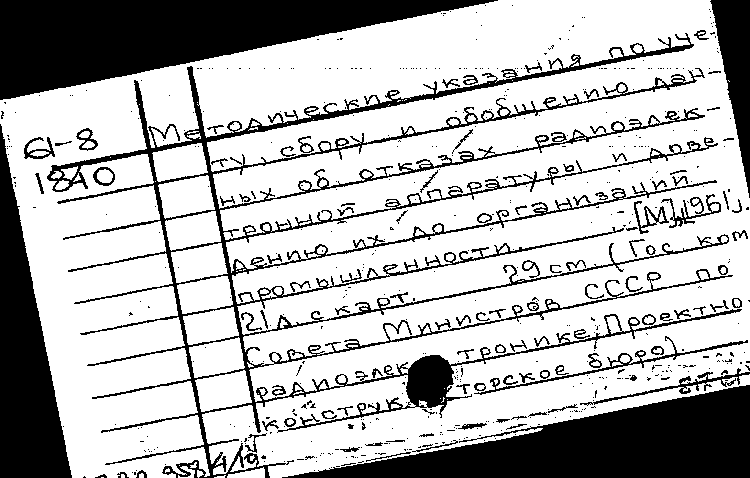 61-8
1840
Методические указания по уче-
ту, сбору и обобщению дан-
ных об отказах радиоэлек-
тронной аппаратуры и дове-
дению их до организаций
промышленности. [М], 1961.
21 л. с карт. 29 см. (Гос. ком
Совета Министров СССР по
радиоэлек тронике. Проектно
конструк торское бюро)